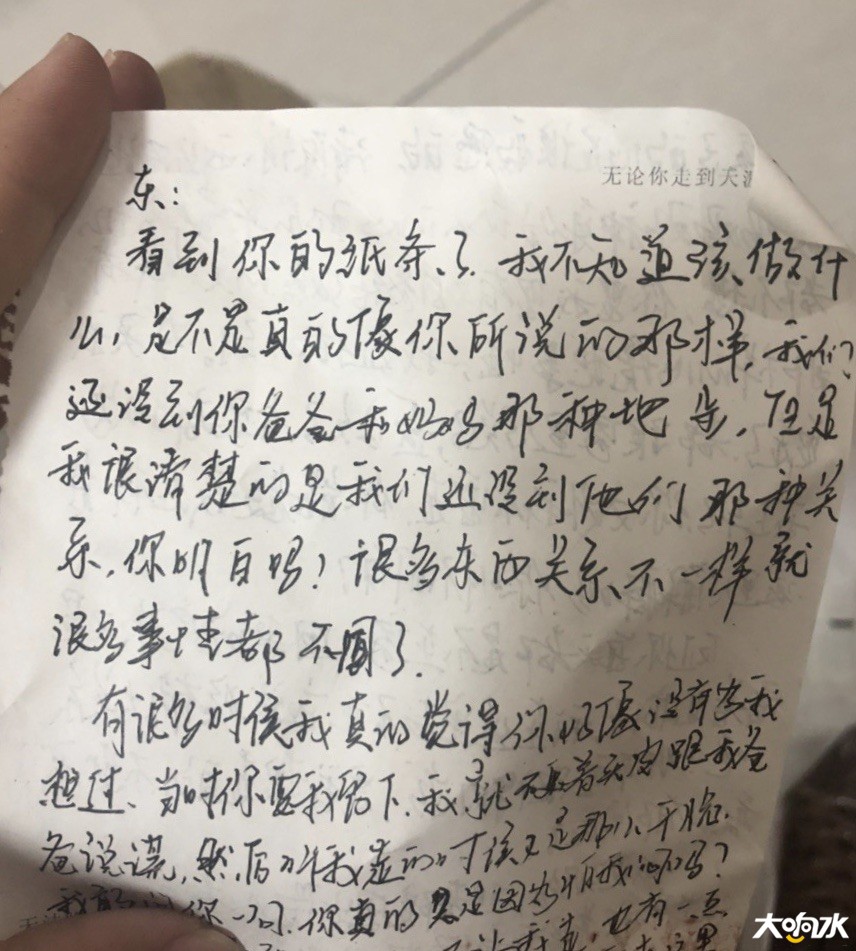 无论你走到天涯
东：
看到你的纸条了.我不知道该做什
么，是不是真的像你所说的那样，我们
还没到你爸爸和妈妈那种地步，但是
我很清楚的是我们还没到他们那种关
系，你明白吗！很多东西关系不一样就
很多事情都不同了.
有很多时候我真的觉得你好像没有害我
想过、当时你要我留下.我就死着死皮跟我爸
爸说谎，然后叫我走的时候又是那么干脆.
你一句.你真的是因为
也有一点
大响水